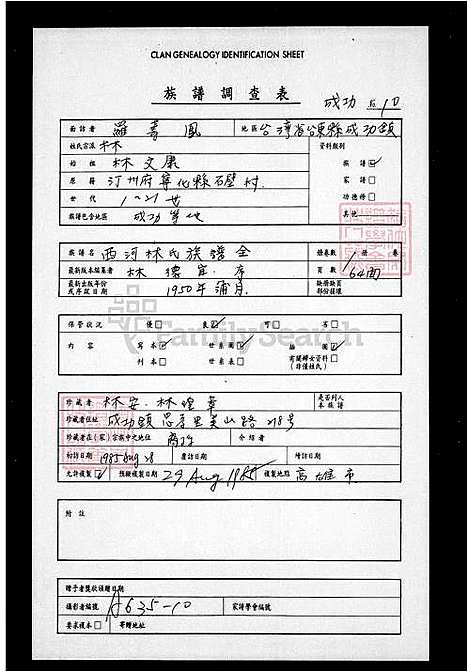 CLAN GENEALOGY IDENTIFICATION SHEET
族譜調查表
成功 10
面訪者 羅 鳳 地區 台灣省台東縣成功鎮
姓氏宗派 林 資料類別
始祖 林文康 族譜 ☑
原籍 汀州府寧化縣石壁村 家譜 □
世代 1~21世 功德榜 □
族譜包含地區 成功等地 其他
族譜名 西河林氏族譜全 冊卷數 1 冊 卷
最新版本編著者 林德 序 頁數 64面
最新出版年份或序跋日期 1950年 月 缺冊缺頁部份錄環
保管狀況 優 □ 良 ☑ 可 □ 劣 □
內容 寫本 ☑ 世系圖 ☑ 插圖 ☑
刊本 □ 世系表 □ 有關婦女資料 □ (非僅姓氏)
FamilySearch
珍藏者 林安·林 章 是否列入本族譜
珍藏者住址 成功鎮忠孝里美山路218號
珍藏者在(家)宗族中之地位 裔孫 介紹者
初訪日期 1985 Aug 28 覆訪日期 續訪日期
允許複製 ☑ 預擬複製日期 29 Aug 1985 複製地點 高雄市
附註
贈予者獎狀頒贈日期
攝影者編號 A635-10 家譜學會編號
要求複本 □ 寄贈地址